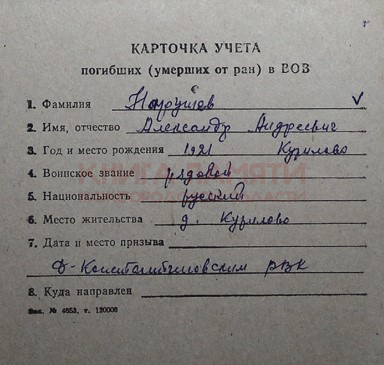 КАРТОЧКА УЧЕТА
погибших (умерших от ран) в ВОЗ
1. Фамилия
2. Имя, отчество Александр Андреевич
3. Год и место рождения 1921 Курилово
4. Воинское звание рядовой
5. Национальность русский
6. Место жительства д. Курилово
7. Дата и место призыва
Д-Константиновским РВК
8. Куда направлен
Зак. № 4653, т. 120000